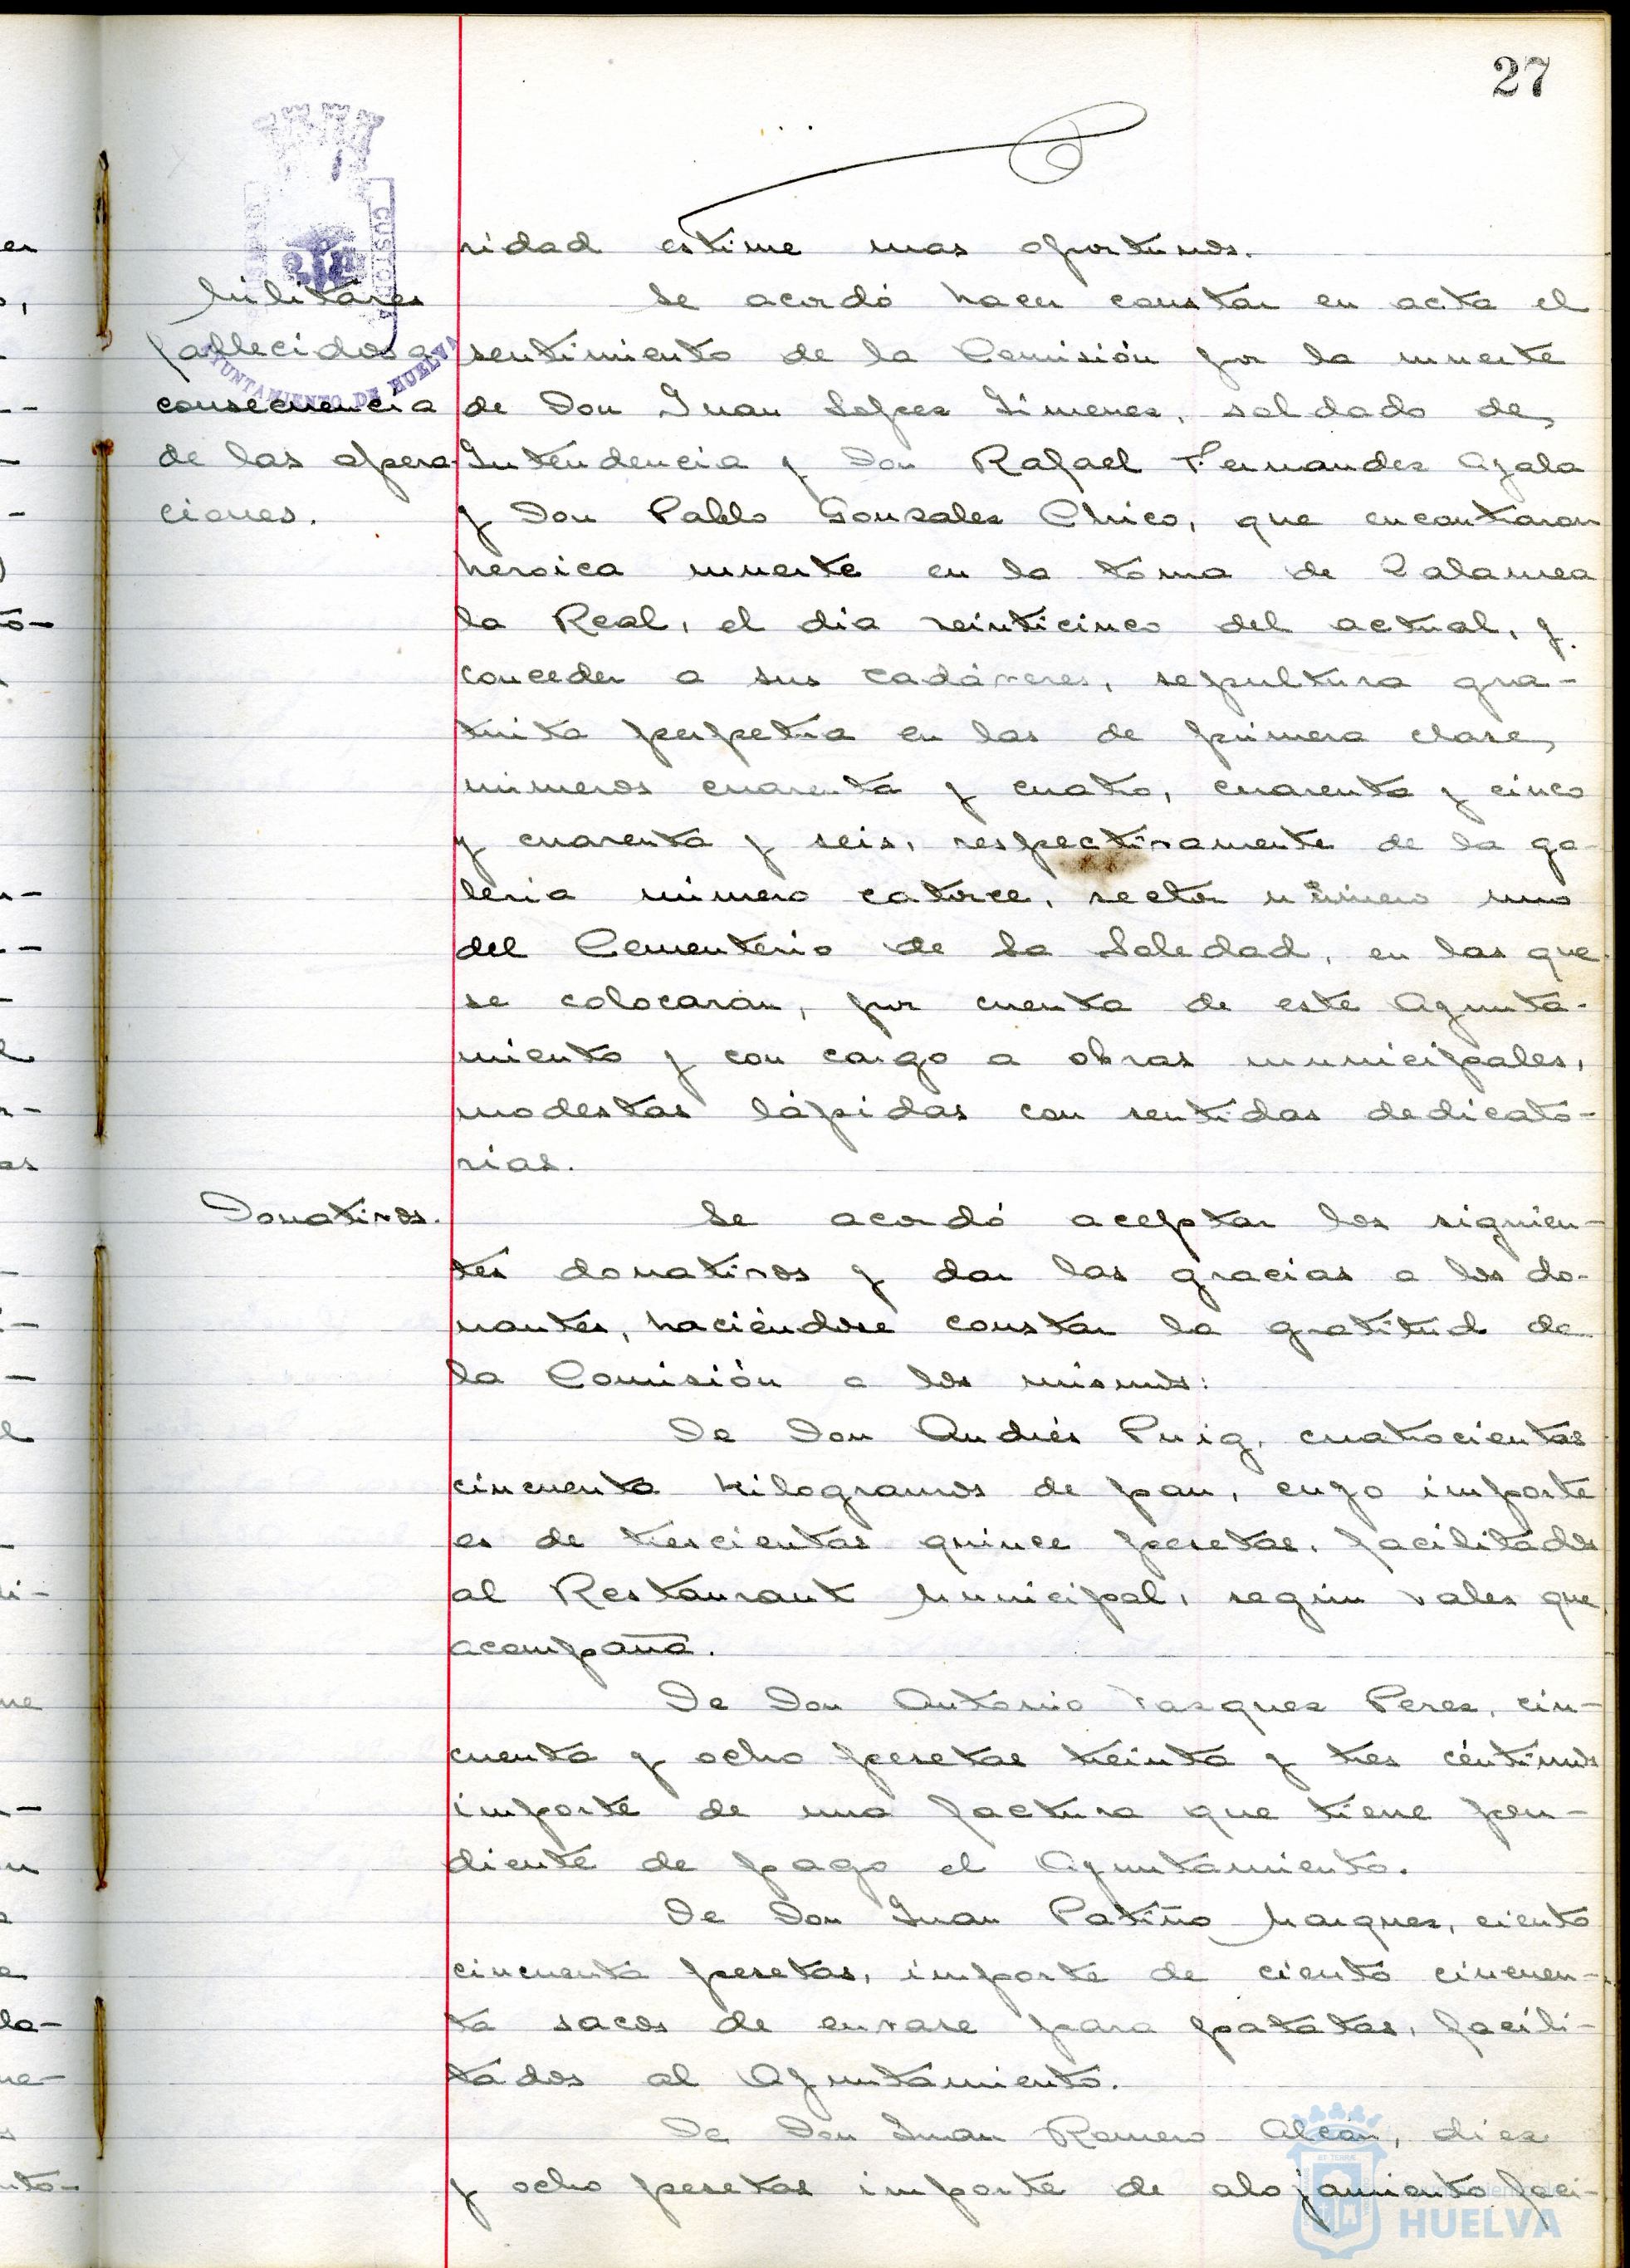 27
ridad estime mas oportunos.
Militares
fallecidos a
consecuencia
de las opera
ciones.
Se acordó hacer constar en acta el
sentimiento de la Comisión por la muerte
de Don Juan Lopez Jimenez, soldado de
Intendencia y Don Rafael Fernandez Ayala
y Don Pablo Gonzalez Chico, que encontraron
heroica muerte en la toma de Zalamea
la Real, el dia veinticinco del actual, y
conceder a sus cadáveres, sepultura gra-
tuita perpetua en las de primera clase,
números cuarenta y cuatro, cuarenta y cinco
y cuarenta y seis, respectivamente de la ga-
leria número catorce, sector número uno
del Cementerio de La Soledad, en las que
se colocarán, por cuenta de este Ayunta-
miento y con cargo a obras municipales,
modestas lápidas con sentidas dedicato-
rias.
Donativos.
Se acordó aceptar los siguien-
tes donativos y dar las gracias a los do-
nantes, haciéndose constar la gratitud de
la Comisión a los mismos:
De Don Andrés Puig, cuatrocientas
cincuenta kilogramos de pan, cuyo importe
es de trescientas quince pesetas, facilitados
al Restaurant Municipal, según vales que
acompaña.
De Don Antonio Vazquez Perez, cin-
cuenta y ocho pesetas treinta y tres céntimos
importe de una factura que tiene pen-
diente de pago el Ayuntamiento.
De Don Juan Patiño Marquez, ciento
cincuenta pesetas, importe de ciento cincuen-
ta sacos de envase para patatas, facili-
tados al Ayuntamiento.
De Don Juan Romero Alcón, diez
y ocho pesetas importe de alojamiento faci-
CUSTODIA
AYUNTAMIENTO DE HUELVA
HUELVA